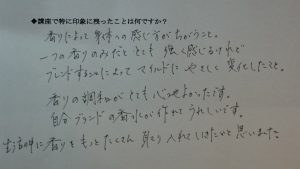 ◆講座で特に印象に残ったことは何ですか？
香りによって身体への感じ方がちがうこと。
一つの香りのみだととても強く感じるけれど
ブレンドすることによってマイルドにやさしく変化したこと。
香りの調和がとても心地よかったです。
自分ブランドの香水が作れてうれしいです。
生活の中に香りをもっとたくさん取り入れていけたらと思いました。